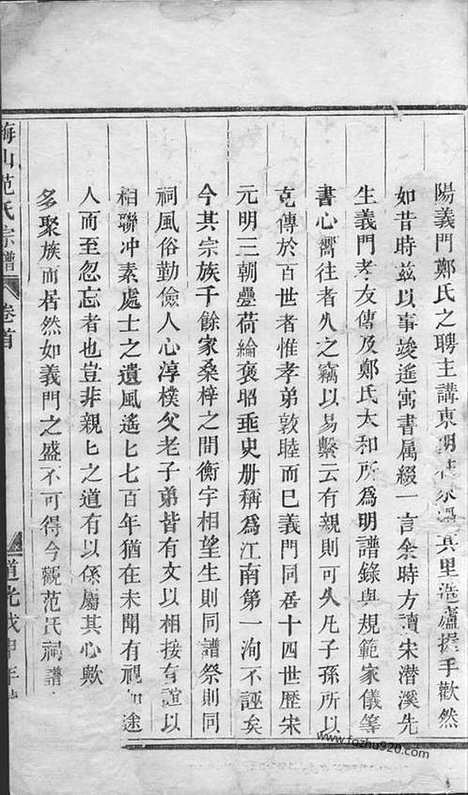 陽義門鄭氏之聘主講東明過其里造廬握手歡然
如昔時茲以事竣遙寓書属綴一言余時方讀宋潛溪先
生義門孝友傳及鄭氏太和所爲明譜錄與規範家儀等
書心嚮往者久之竊以易繫云有親則可久凡子孫所以
克傳於百世者惟孝弟敦睦而已義門同居十四世歷宋
元明三朝疊荷綸褒昭垂史册稱爲江南第一洵不誣矣
今其宗族千餘家桑梓之間衡宇相望生則同譜祭則同
祠風俗勤儉人心淳樸父老子弟皆有文以相接有誼以
相聯冲素處士之遺風遙匕七百年猶在未聞有視如途
人而至忽忘者也豈非親匕之道有以係屬其心歟
多聚族而居然如義門之盛不可得今觀范氏祠譜
梅山范氏宗譜
卷首
道光戊申年
www.fozhu920.com